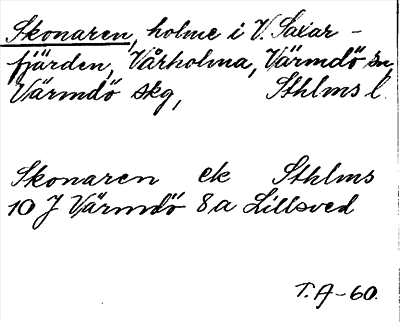 Skonaren, holme i V. Saxar-
fjärden, Vårholma, Värmdö sn,
Värmdö skg, Sthlms l.
Skonaren ek Sthlms
10 J Värmdö 8a Lillsved
T.A-60.